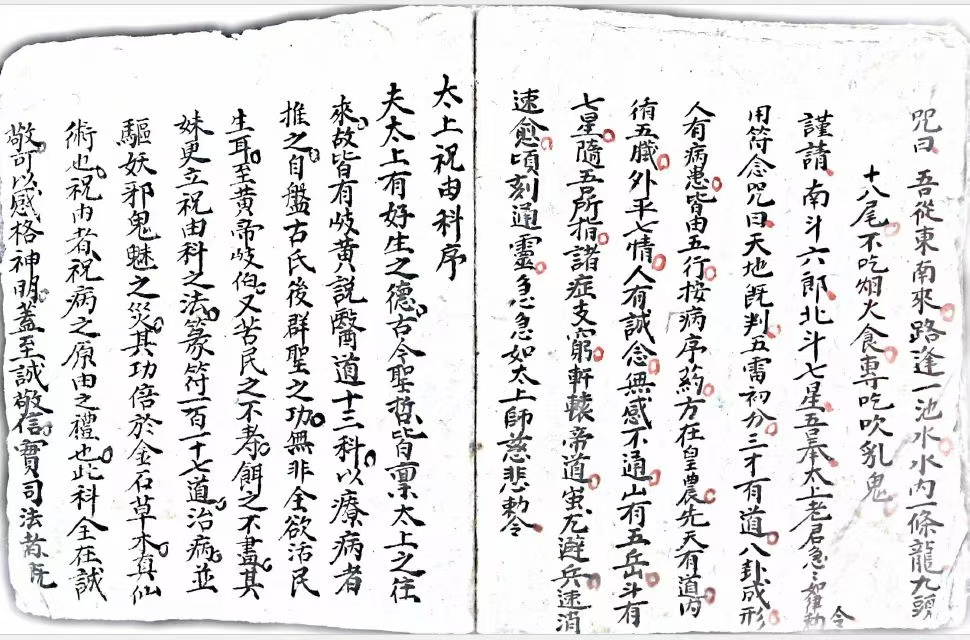 咒曰吾從東南來路逢一池水水內一條龍九頭
十八尾不吃烟火食專吃吹乳鬼
謹請南斗六郎北斗七星吾奉太上老君急々如律勅令
用符念咒曰天地既判五雷初分三才有道八卦成形
人有病患皆由五行按病序药方在皇農先天有道内
侑五臟外平七情人有誠念無感不通山有五岳斗有
七星隨吾所指諸症支窮軒轅帝道蚩尤避兵速消
速愈頃刻通靈急急如太上師慈悲勅令
太上祝由科序
夫太上有好生之德古今聖哲皆稟太上之往
來故皆有岐黃説醫道十三科以療病者
推之自盤古氏後群聖之功無非全欲活民
生耳至黃帝岐伯又苦民之不壽餌之不盡其
妹更立祝由科之法篆符一百一十七道治病並
驅妖邪鬼魅之災其功倍於金石草木真仙
術也祝由者祝病之原由之禮也此科全在誠
敬可以感格神明蓋至誠敬信實司法者既